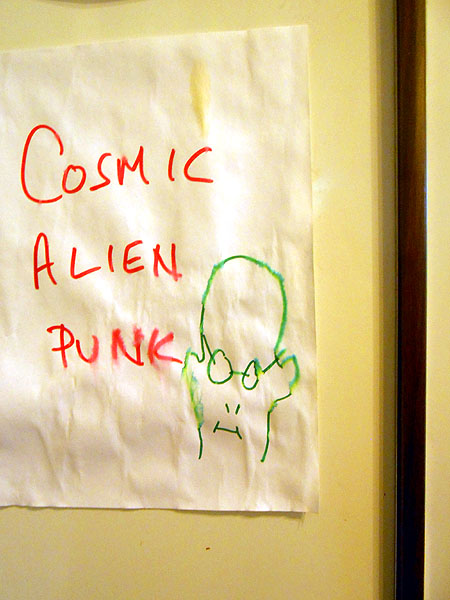 COSMIC
ALIEN
PUNK